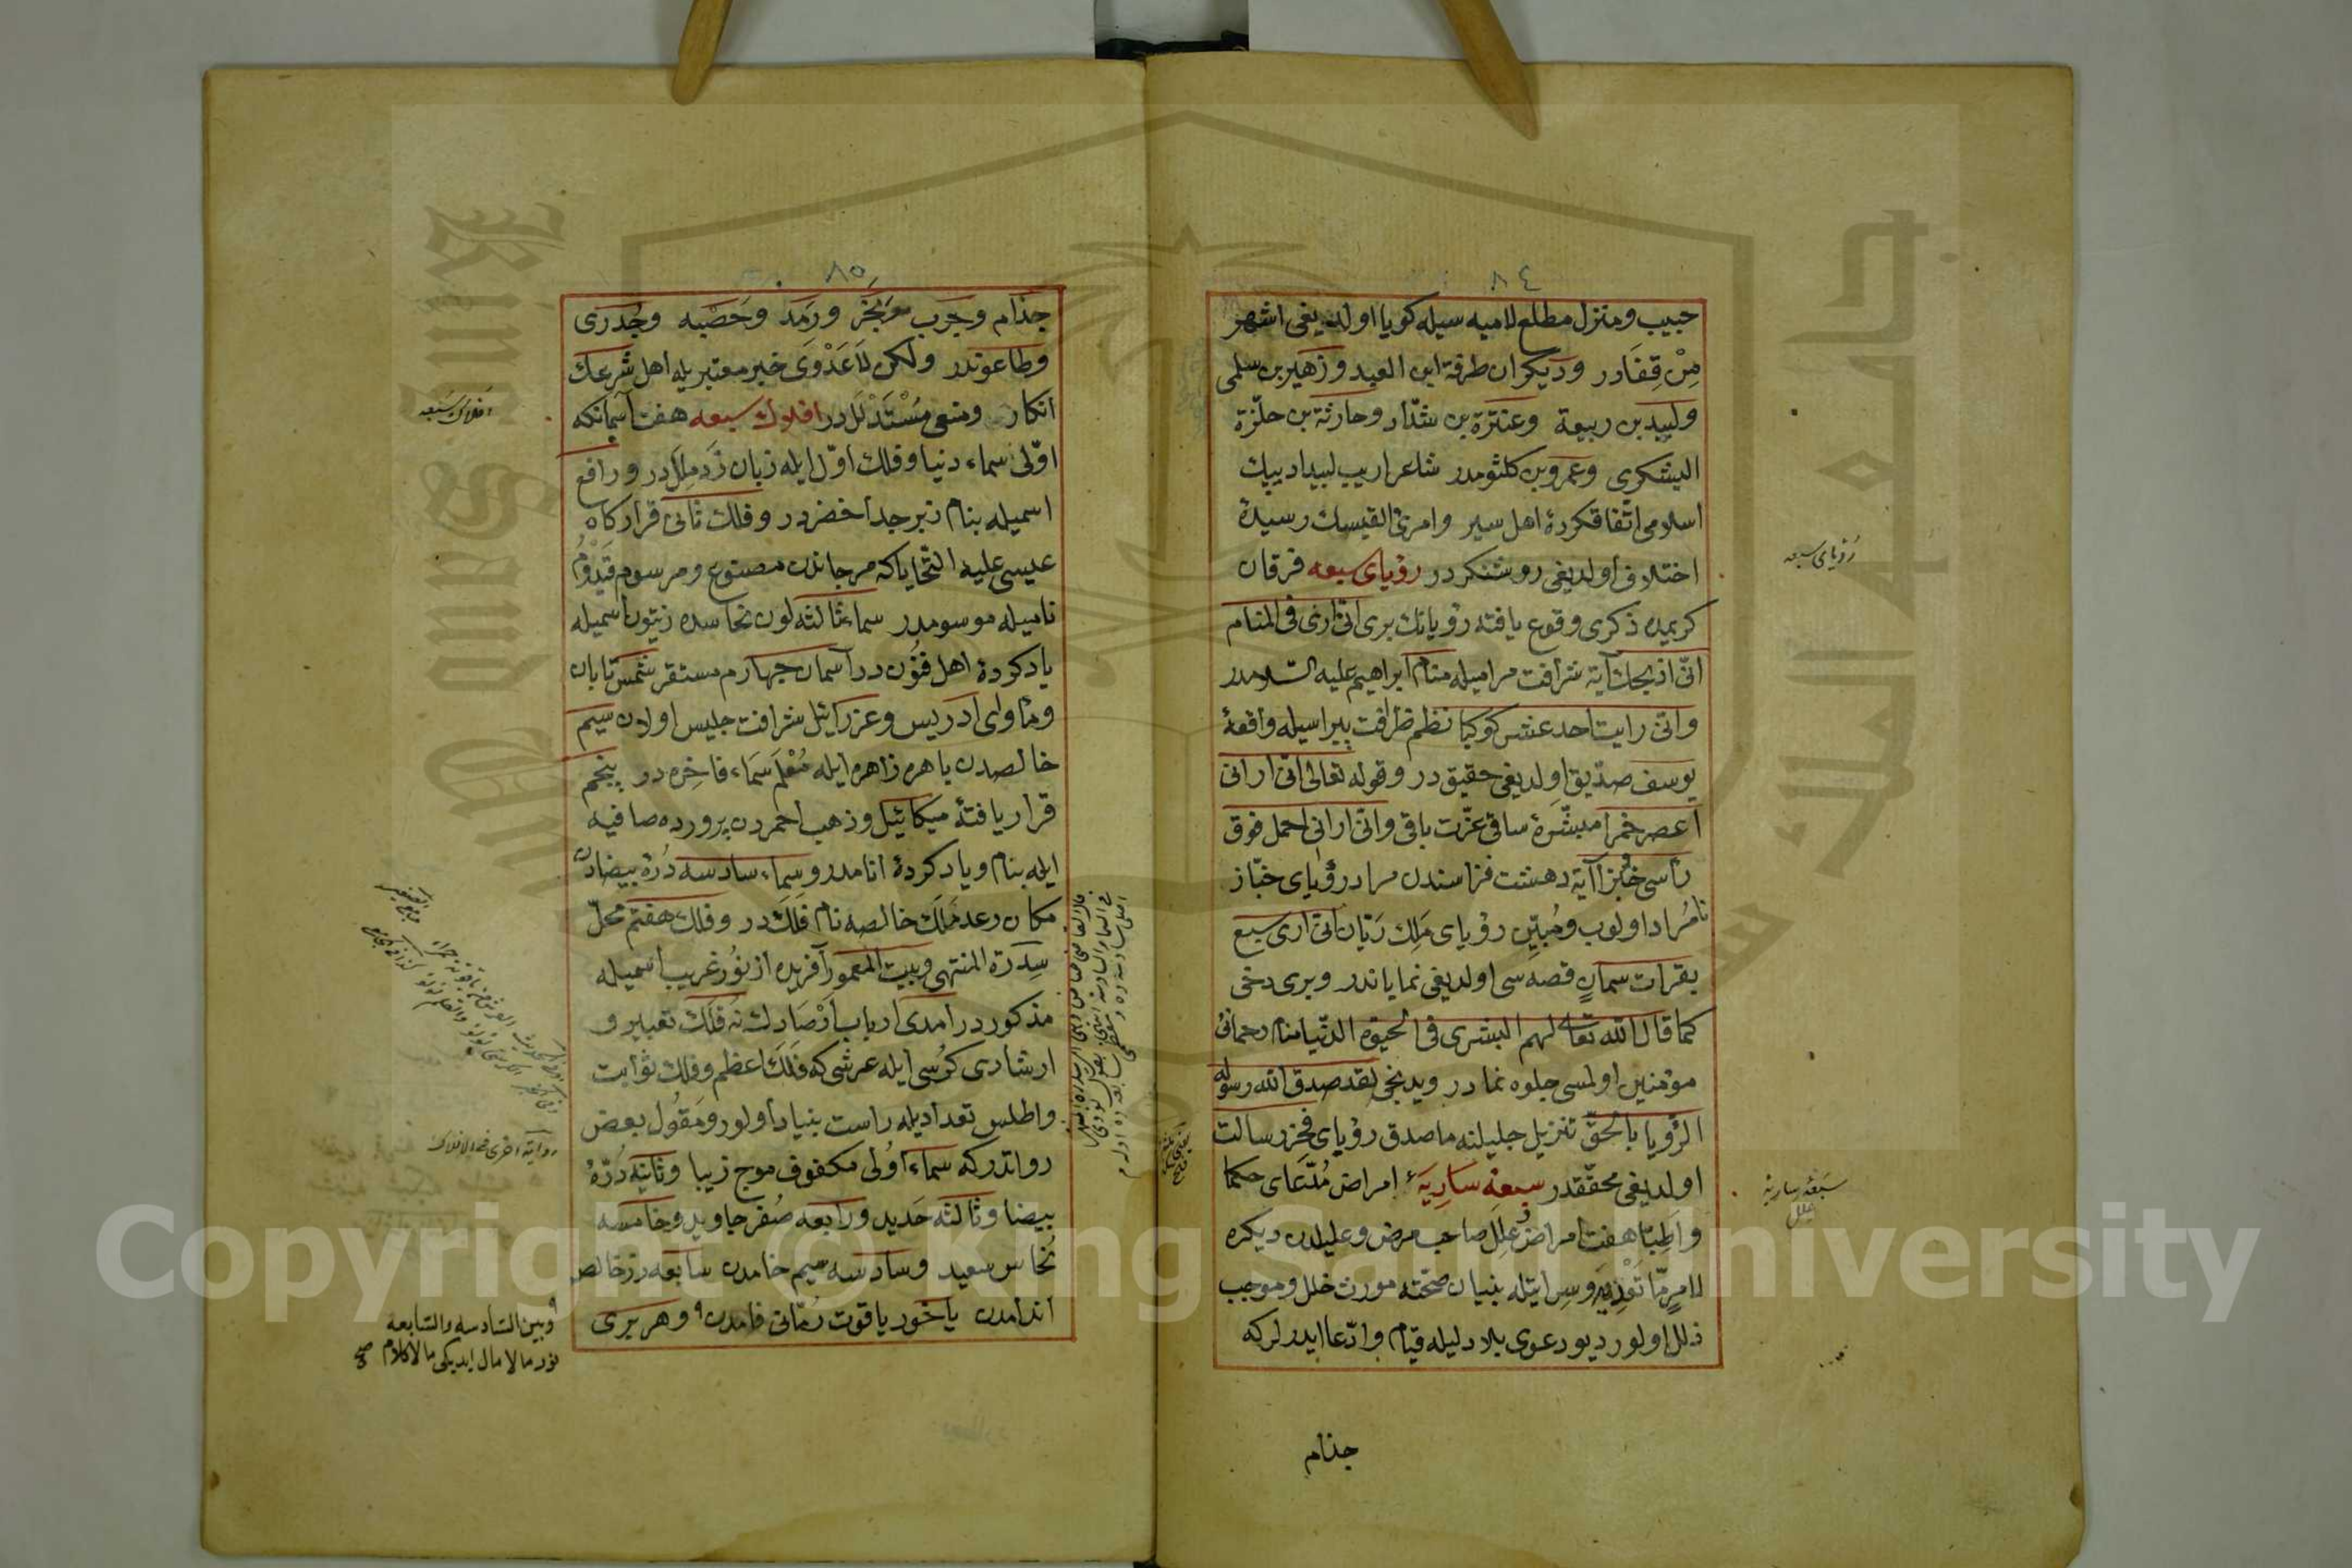 ٨٤
حبيب ومنزل مطلع لاميه سيله كويا اولديغى اشهر
مِنْ قِفَادر وديكران طرفة ابن العبد وزهير بن سلمى
ولبيد بن ربيعة وعنترة بن شدّاد وحارثة بن حلّزة
اليشكرى وعمرو بن كلثومدر شاعر اريب لبيد اديبك
اسلامى اتّفاقكردهٔ اهل سير وامرئ القيسك رسيدهٔ
اختلاف اولديغى روشنكردر رؤياى سبعه فرقان
كريمده ذكرى وقوع يافته رؤيانك برى انّى ارى فى المنام
انّى اذبحك آية شرافت مراميله منام ابراهيم عليه السّلامدر
وانّى رايت احد عشر كوكبا نظم ظرافت پيراسيله واقعهٔ
يوسف صدّيق اولديغى حقيقدر وقوله تعالى انّى ارانى
اعصر خمرا مبشّرهٔ ساقئ عزّت باقى وانّى ارانى احمل فوق
رأسى خبزا آية دهشت فزاسندن مراد رؤياى خبّاز
نامراد اولوب ومُبيّن رؤياى مَلِك رَيّان انّى ارى سبع
بقرات سمانٍ قصه سى اولديغى نماياندر وبرى دخى
كما قال الله تعالى لهم البشرى فى الحيوة الدّنيا منام رحمانئ
مؤمنين اولمسى جلوه نمادر ويدنجى لقد صدق الله رسوله
الرّؤيا بالحقّ تنزيل جليلنه ماصدق رؤياى فخر رسالت
اولديغى محقّقدر سبعهٔ ساريهٔ امراض مُدّعاى حكما
واطبّا هفت امراض عِلَل صاحب مرض وعليلدن ديكره
لامرٍمّا تَعْدِيَه وسِرايتله بنيان صحّته مورث خلل وموجب
ذلل اولور ديو دعوى بلا دليله قيام وادّعا ايدرلركه
جذام
رؤياى سبعه
سبعهٔ ساريهٔ
علل
٨٥
جذام وجَرَب وبَخَر ورَمَد وحَصْبه وجُدَرى
وطاعوندر ولكن لاعَدْوَى خبر معتبريله اهل شرعك
انكار ومنعى مُسْتَدْلَلدر افلاك سبعه هفت آسمانكه
اوّلى سماء دنيا وفلك اوّل ايله زبان زَدِ مِلَلدر ورافع
اسميله بنام زبرجد اخضردر وفلك ثانى قراركاه
عيسى عليه التّحاياكه مرجاندن مصنوع ومرسوم قَيْدُوم
ناميله موسومدر سماء ثالثه لون نحاسده زيتون اسميله
ياد كردهٔ اهل فنّون در آسمان چهارم مستقر شمس تابان
ومأواى ادريس وعزرائيل شرافت جليس اولان سيم
خالصدن باهره زاهره ايله مُعْلَم سماء فاخره در پنجم
قرار يافتهٔ ميكائيل وذهب احمردن پرورده صافيه
ايله بنام وياد كردهٔ انامدر وسماء سادسه دُرّهٔ بيضادن
مكان رعد مَلَك خالصه نام فَلَك در وفلك هفتم محلّ
سِدرة المنتهى وبيت المعمور آفريده از نور غريب اسميله
مذكور در آمدى ارباب أرْصادك نُه فَلَك تعبير و
ارشادى كُرسى ايله عرشى كه فَلَك اعظم وفلك ثوابت
واطلس تعداديله راست بنياد اولور ومَقُول بعض
رواتدركه سماء اُولى مكفوف موج زيبا وثانيه دُرّهٔ
بيضا وثالثه حَديد ورابعه صُفر جاويد وخامسه
نُحاس سعيد وسادسه سيم خامدن سابعه زر خالص
اندامدن ياخود ياقوت رُمّانى فامدن وهر برى
افلاك سبعه
روايت اخرى فى الافلاك
وبين السّادسه والسّابعه